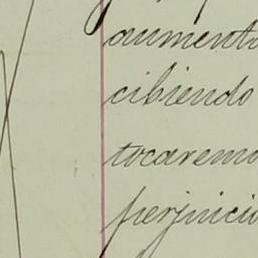 aumento
cibiendo
tocaremo
perjuicio